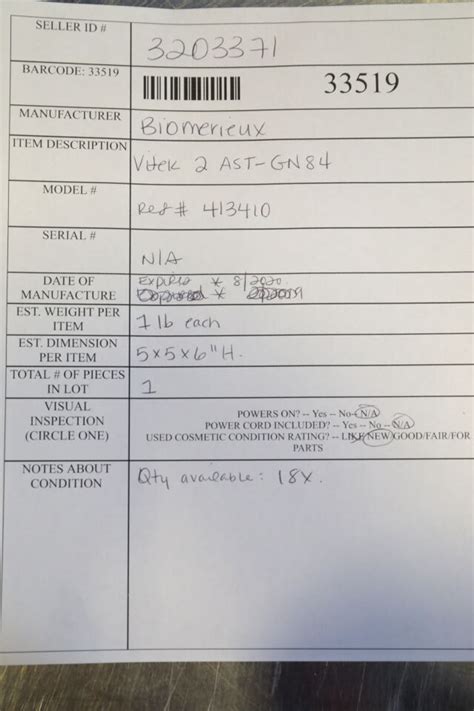 SELLER ID #
3203371
BARCODE: 33519
33519
MANUFACTURER
Biomerieux
ITEM DESCRIPTION
Vitek 2 AST-GN84
MODEL #
Ref # 413410
SERIAL #
N/A
DATE OF
MANUFACTURE
Expires * 8/2020
EST. WEIGHT PER
ITEM
1 lb each
EST. DIMENSION
PER ITEM
5x5x6"H.
TOTAL # OF PIECES
IN LOT
1
VISUAL
INSPECTION
(CIRCLE ONE)
POWERS ON? -- Yes -- No--N/A
POWER CORD INCLUDED? -- Yes -- No --N/A
USED COSMETIC CONDITION RATING? -- LIKE NEW/GOOD/FAIR/FOR
PARTS
NOTES ABOUT
CONDITION
Qty available: 18x.